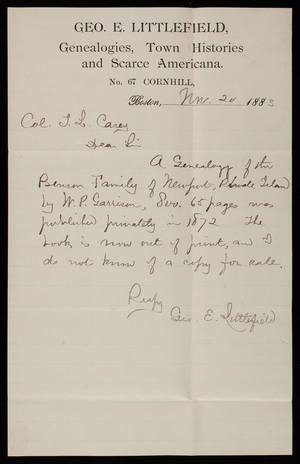 GEO. E. LITTLEFIELD,
Genealogies, Town Histories
and Scarce Americana.
No. 67 CORNHILL,
Boston, Nov. 20 1883
Col. T. L. Casey
Dear Sir
A Genealogy of the
Benson Family of Newport, Rhode Island
by W. P. Garrison, 8vo. 65 pages was
published privately in 1872 The
book is now out of print, and I
do not know of a copy for sale.
Respy
Geo. E. Littlefield